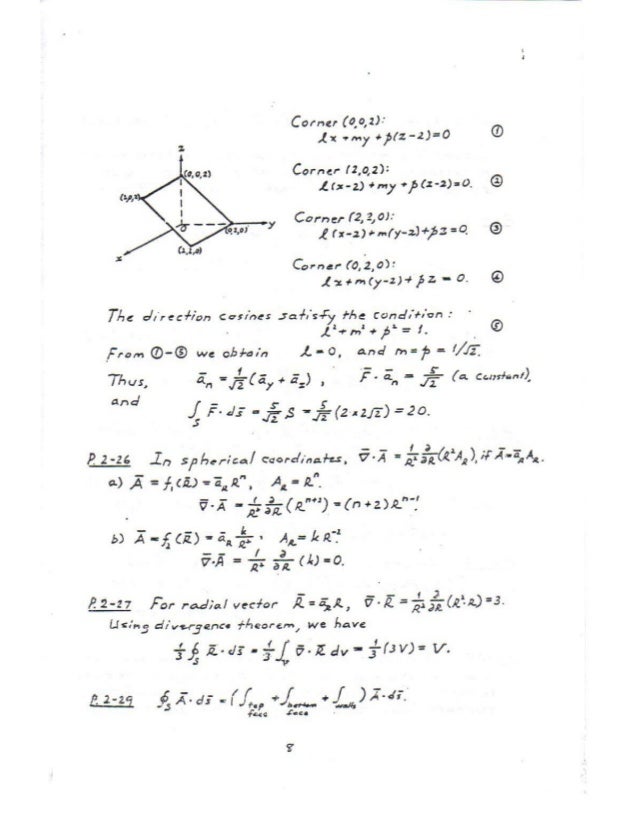 Corner (0,0,2):
lx + my + p(z-2)=0 ①
Corner (2,0,2):
l(x-2) + my + p(z-2)=0. ②
Corner (2,2,0):
l(x-2)+m(y-2)+pz=0. ③
Corner (0,2,0):
lx+m(y-2)+pz = 0. ④
z
(0,0,2)
(2,0,2)
O
(0,2,0)
y
(2,2,0)
x
The direction cosines satisfy the condition:
l²+m²+p² = 1. ⑤
From ①-⑤ we obtain l=0, and m=p=1/√2.
Thus, ā_n = 1/√2 (ā_y + ā_z), F̄·ā_n = 5/√2 (a constant),
and
∫_S F̄·ds̄ = 5/√2 S = 5/√2 (2×2√2) = 20.
P.2-26 In spherical coordinates, ∇̄·Ā = 1/R² ∂/∂R (R²A_R), if Ā=ā_R A_R.
a) Ā = f₁(R̄) = ā_R Rⁿ, A_R = Rⁿ.
∇̄·Ā = 1/R² ∂/∂R (Rⁿ⁺²) = (n+2)Rⁿ⁻¹
b) Ā = f₂(R̄) = ā_R k/R², A_R = kR⁻².
∇̄·Ā = 1/R² ∂/∂R (k)=0.
P.2-27 For radial vector R̄=ā_R R, ∇̄·R̄ = 1/R² ∂/∂R (R²·R)=3.
Using divergence theorem, we have
1/3 ∮_S R̄·ds̄ = 1/3 ∫_V ∇̄·R̄ dv = 1/3 (3V) = V.
P.2-29 ∮_S Ā·ds̄ = (∫_top face + ∫_bottom face + ∫_walls) Ā·ds̄.
8